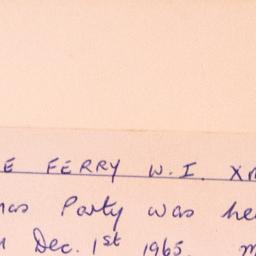 E FERRY W.I. Xm
mas Party was he
n Dec. 1st 1965. M